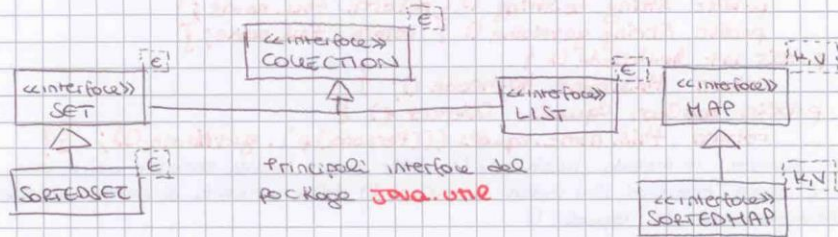 E
<<interface>>
COLLECTION
E
<<interface>>
SET
E
<<interface>>
LIST
K,V
<<interface>>
MAP
E
SORTEDSET
Principali interfacce del
package Java.util
K,V
<<interface>>
SORTEDMAP